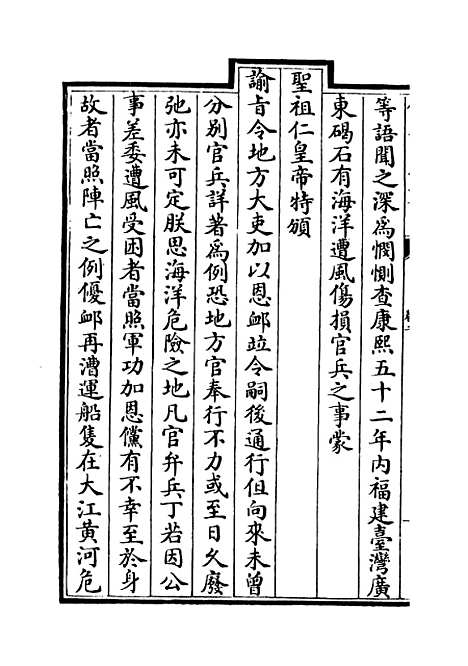 等語聞之深為憫惻查康熙五十二年内福建臺灣廣
東碣石有海洋遭風傷損官兵之事蒙
聖祖仁皇帝特頒
諭旨令地方大吏加以恩䘏竝令嗣後通行但向來未曾
分别官兵詳著為例恐地方官奉行不力或至日久廢
弛亦未可定朕思海洋危險之地凡官弁兵丁若因公
事差委遭風受困者當照軍功加恩儻有不幸至於身
故者當照陣亡之例優䘏再漕運船隻在大江黄河危